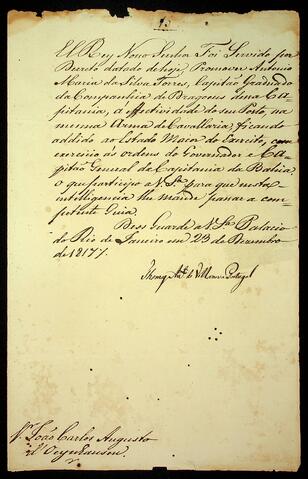 El Rey Nosso Senhor Foi Servido por
Decreto datado de hoje, Promover Antonio
Maria da Silva Torres, Capitão Graduado
da Companhia de Dragoens dessa Ca-
pitania, á effectividade do seu Posto, na
mesma Arma de Cavallaria, ficando
addido ao Estado Maior do Exercito, com
exercicio ás ordens do Governador e Ca-
pitão General da Capitania da Bahia
o que participo a V. S.ª para que nesta
intelligencia lhe mande passar a com-
petente Guia.
Deos Guarde a V. S.ª Palacio
do Rio de Janeiro em 23 de Dezembro
de 1817.
Thomaz Ant.º de Villanova Portugal
S.r João Carlos Augusto
d'Oeynhausen